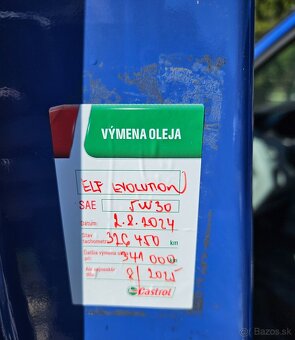 VÝMENA OLEJA
ELF EVOLUTION
SAE 5W30
Dátum: 2.8.2024
Stav tachometra 326 450 km
Ďalšia výmena pri: 341 000 km
8/2025
Castrol
Bazos.sk